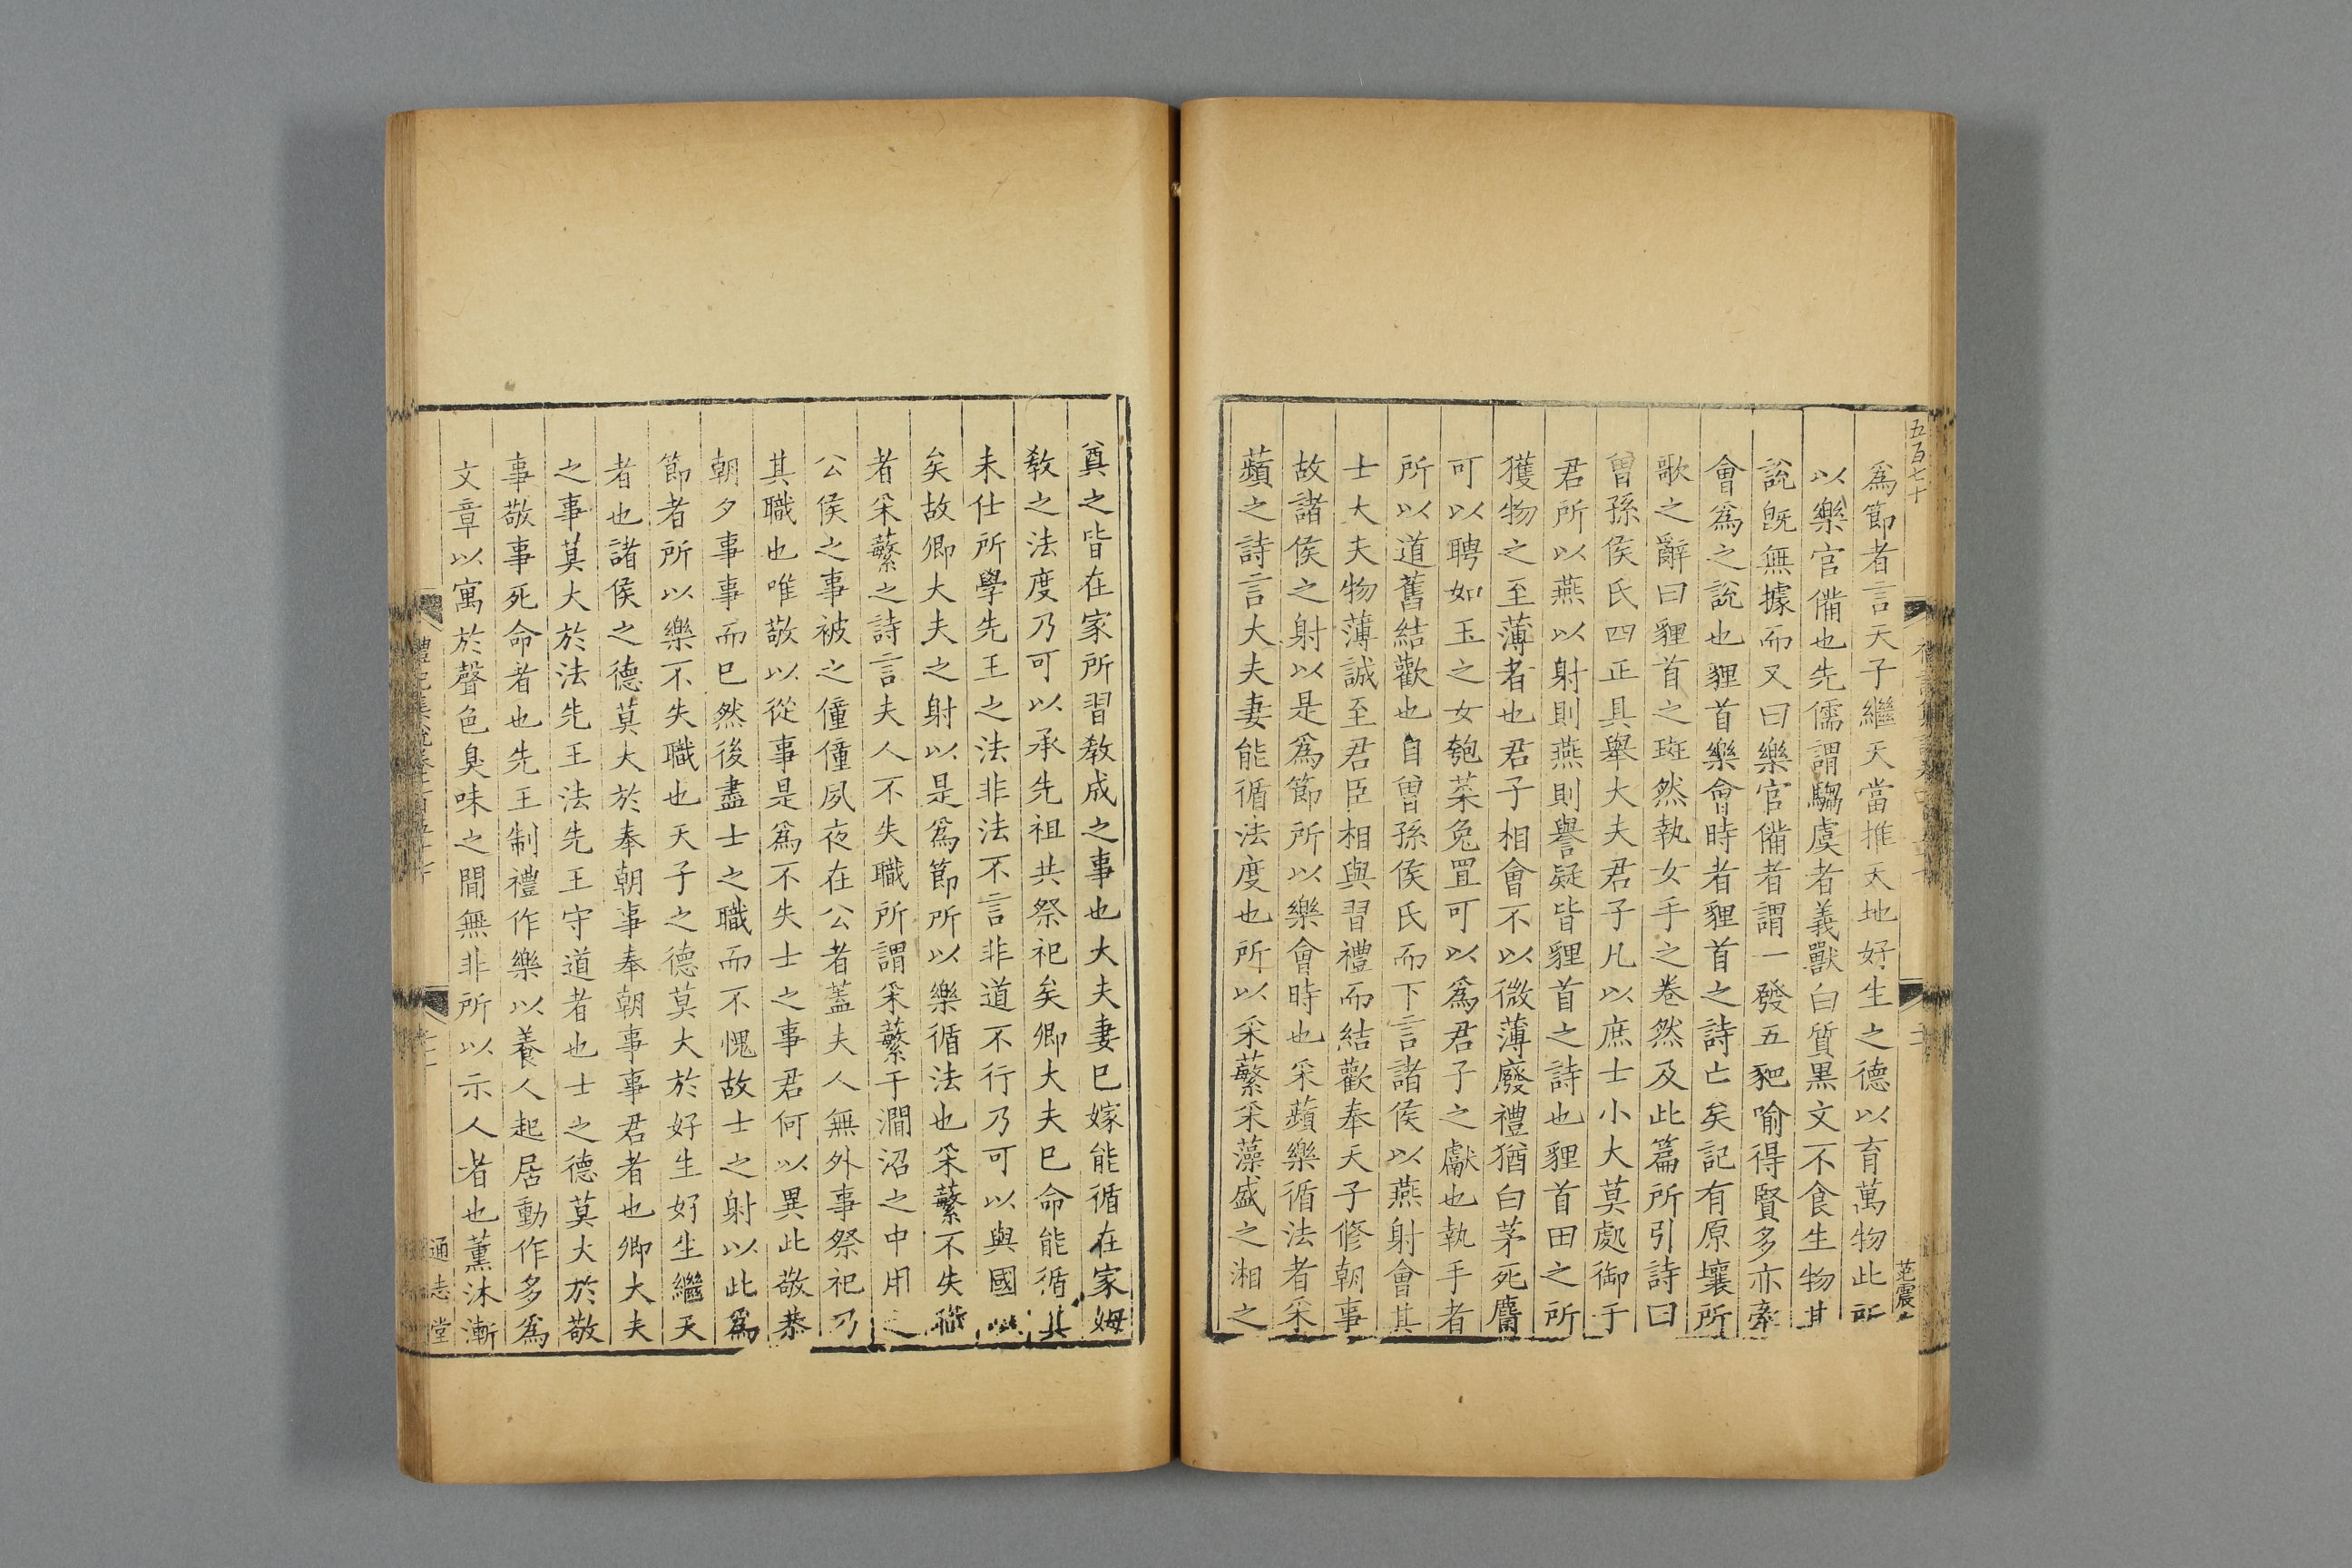 五百七十
為節者言天子繼天當推天地好生之德以育萬物此所
以樂官備也先儒謂騶虞者義獸白質黑文不食生物其
說旣無據而又曰樂官備者謂一發五豝喻得賢多亦牽
會為之說也貍首樂會時者貍首之詩亡矣記有原壤所
歌之辭曰貍首之斑然執女手之卷然及此篇所引詩曰
曾孫侯氏四正具舉大夫君子凡以庶士小大莫處御于
君所以燕以射則燕則譽疑皆貍首之詩也貍首田之所
獲物之至薄者也君子相會不以微薄廢禮猶白茅死麕
可以聘如玉之女瓠菜兔罝可以為君子之獻也執手者
所以道舊結歡也自曾孫侯氏而下言諸侯以燕射會其
士大夫物薄誠至君臣相與習禮而結歡奉天子修朝事
故諸侯之射以是為節所以樂會時也采蘋樂循法者采
蘋之詩言大夫妻能循法度也所以采蘩采藻盛之湘之
范震
奠之皆在家所習教成之事也大夫妻已嫁能循在家姆
教之法度乃可以承先祖共祭祀矣卿大夫已命能循其
未仕所學先王之法非法不言非道不行乃可以與國
矣故卿大夫之射以是為節所以樂循法也采蘩不失職
者采蘩之詩言夫人不失職所謂采蘩于澗沼之中用之
公侯之事被之僮僮夙夜在公者蓋夫人無外事祭祀乃
其職也唯敬以從事是為不失士之事君何以異此敬恭
朝夕事事而已然後盡士之職而不愧故士之射以此為
節者所以樂不失職也天子之德莫大於好生好生繼天
者也諸侯之德莫大於奉朝事奉朝事事君者也卿大夫
之事莫大於法先王法先王守道者也士之德莫大於敬
事敬事死命者也先王制禮作樂以養人起居動作多為
文章以寓於聲色臭味之間無非所以示人者也薰沐漸
禮記集說卷一百五十七
通志堂